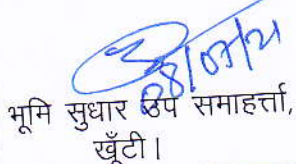 08/07/21
भूमि सुधार उप समाहर्त्ता,
खूँटी।